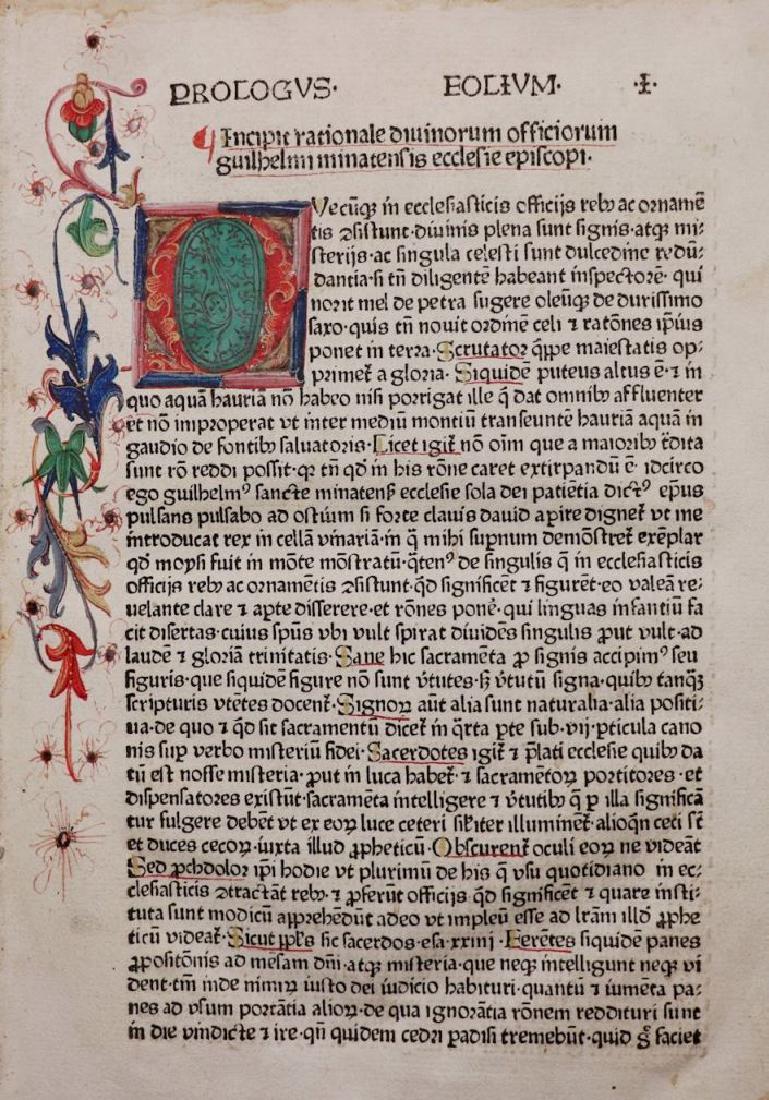 PROLOGVS· FOLIVM· ·I·
¶ Incipit rationale diuinorum officiorum
guilhelmi minatensis ecclesie episcopi·
QVecūqꝫ in ecclesiasticis officijs rebꝰ ac ornamē
tis ꝯsistunt·diuinis plena sunt signis·atqꝫ mi⸗
sterijs·ac singula celesti sunt dulcedine redū⸗
dantia·si tn̄ diligentē habeant inspectorē· qui
norit mel de petra sugere oleūqꝫ de durissimo
saxo·quis tn̄ nouit ordinē celi ⁊ ratōnes ip̄ius
ponet in terra·Scrutator q̄ppe maiestatis op⸗
primet᷑ a gloria· Siquidē puteus altus ē·⁊ in
quo aquā hauriā nō habeo nisi porrigat ille q̄ dat omnibꝰ affluenter
et nō improperat vt inter mediū montiū transeuntē hauriā aquā in
gaudio de fontibꝰ saluatoris·Licet igit᷑ nō oīm que a maioribꝰ t̄dita
sunt rō reddi possit·qꝛ tn̄ qd̄ in his rōne caret extirpandū ē· idcirco
ego guilhelmꝰ sancte minatens̄ ecclesie sola dei patiētia dictꝰ ep̄us
pulsans pulsabo ad ostium si forte clauis dauid apire dignet᷑ vt me
introducat rex in cellā vinariā·in q̄ mihi supnum demōstret᷑ exēplar
qd̄ moysi fuit in mōte mōstratū·q̄tenꝰ de singulis q̄ in ecclesiasticis
officijs rebꝰ ac ornamētis ꝯsistunt·qd̄ significēt ⁊ figurēt·eo valeā re⸗
uelante clare ⁊ apte disserere·et rōnes ponē· qui linguas infantiū fa
cit disertas·cuius sp̄us vbi vult spirat diuidēs singulis ꝓut vult·ad
laudē ⁊ gloriā trinitatis·Sane hic sacramēta ꝓ signis accipimꝰ seu
figuris·que siquidē figure nō sunt v̄tutes·sꝫ v̄tutū signa·quibꝰ tanqꝫ̄
scripturis vtētes docent᷑·Signoꝝ aūt alia sunt naturalia·alia positi⸗
ua·de quo ⁊ qd̄ sit sacramentū dicet᷑ in q̄rta pte sub·vij·pticula cano
nis sup verbo misteriū fidei·Sacerdotes igit᷑ ⁊ p̄lati ecclesie quibꝰ da
tū est nosse misteria·ꝓut in luca habet᷑·⁊ sacramētoꝝ portitores·et
dispensatores existūt·sacramēta intelligere ⁊ v̄tutibꝰ q̄ p illa significā
tur fulgere debēt vt ex eoꝝ luce ceteri sil̄iter illuminet᷑·alioqn̄ ceci st̄
et duces cecoꝝ·iuxta illud ꝓpheticū·Obscurent᷑ oculi eoꝝ ne videāt
Sed ꝓchdolor ip̄i hodie vt plurimū de his q̄ vsu quotidiano in ec⸗
clesiasticis ꝯtractāt rebꝰ·⁊ ꝓferūt officijs qd̄ significēt ⁊ quare insti⸗
tuta sunt modicū apprehēdūt adeo vt impleū esse ad lr̄am illd̄ ꝓphe
ticū videat᷑·Sicut ppl̄s sic sacerdos·esa·xxiiij·Ferētes siquidē panes
ꝓpositōnis ad mēsam dn̄i·atqꝫ misteria·que neqꝫ intelligunt neqꝫ vi
dent·tm̄ inde nimiꝝ iusto dei iudicio habituri·quantū ⁊ iumēta pa⸗
nes ad vsum portātia alioꝝ·de qua ignorātia rōnem reddituri sunt
in die vindicte ⁊ ire·qn̄ quidem cedri padisi tremebūt·quid g̊ faciet